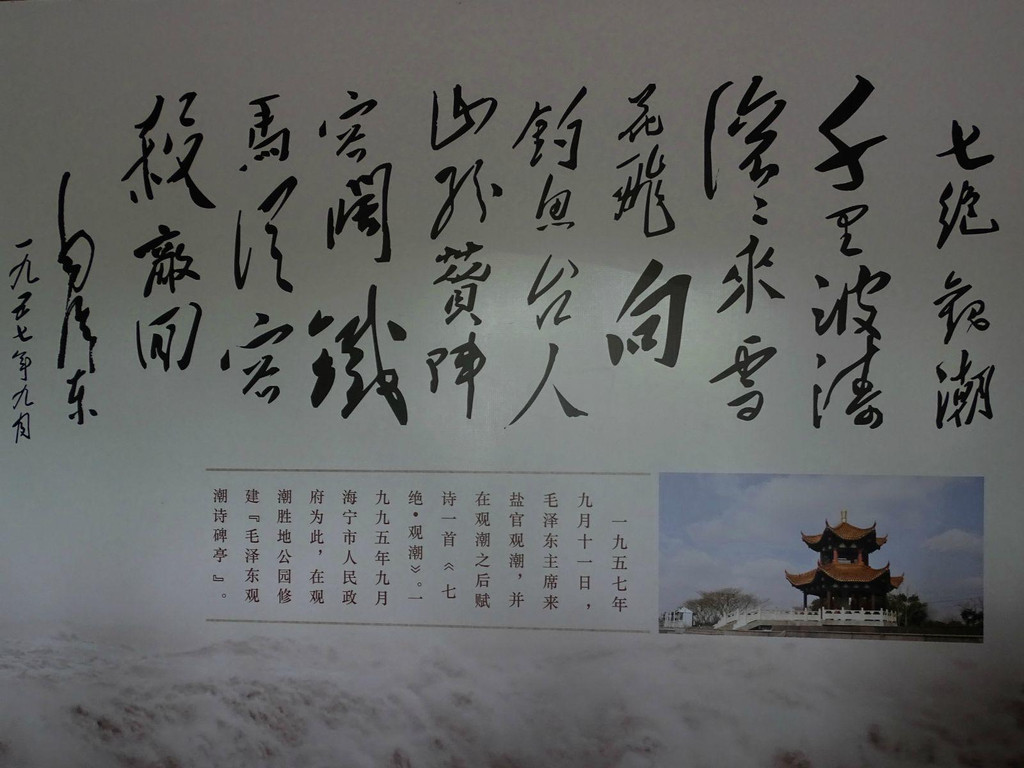 七绝 观潮
千里波涛
滚〻来雪
花飛向
钓魚台人
山纷賛阵
容阔鐵
馬從容
殺敵回
毛泽东
一九五七年九月
一九五七年
九月十一日，
毛泽东主席来
盐官观潮，并
在观潮之后赋
诗一首《七
绝·观潮》。一
九九五年九月
海宁市人民政
府为此，在观
潮胜地公园修
建『毛泽东观
潮诗碑亭』。